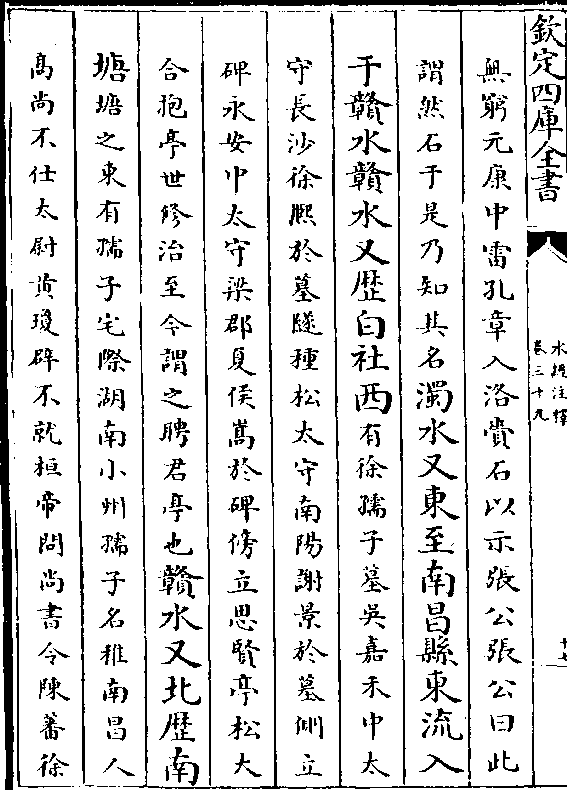 欽定四庫全書
水經注釋
卷三十九
無窮元康中雷孔章入洛賫石以示張公張公曰此
謂然石于是乃知其名濁水又東至南昌縣東流入
于贛水贛水又歴白社西有徐孺子墓吳嘉禾中太
守長沙徐熈於墓隧種松太守南陽謝景於墓側立
碑永安中太守梁郡夏侯嵩於碑傍立思賢亭松大
合抱亭世修治至今謂之聘君亭也贛水又北歴南
塘塘之東有孺子宅際湖南小州孺子名稚南昌人
髙尚不仕太尉黄瓊辟不就桓帝問尚書令陳蕃徐